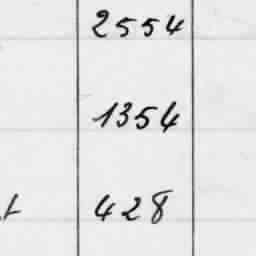 2554
1354
428